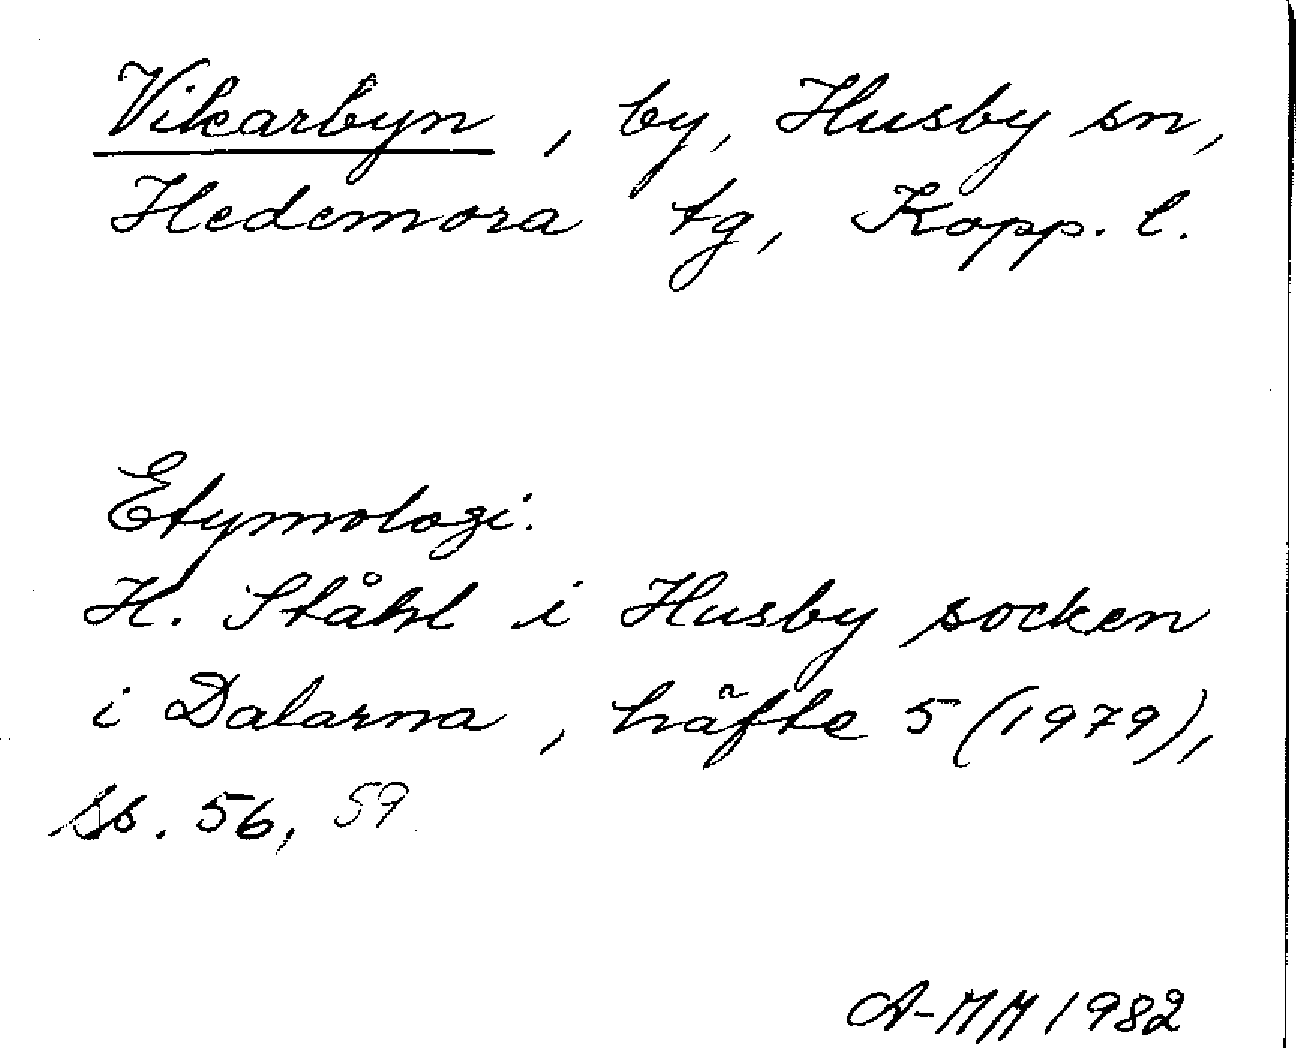 Vikarbyn, by, Husby sn,
Hedemora tg, Kopp. l.
Etymologi.
H. Ståhl i Husby socken
i Dalarna, häfte 5 (1979),
ss. 56, 59
A-MM 1982